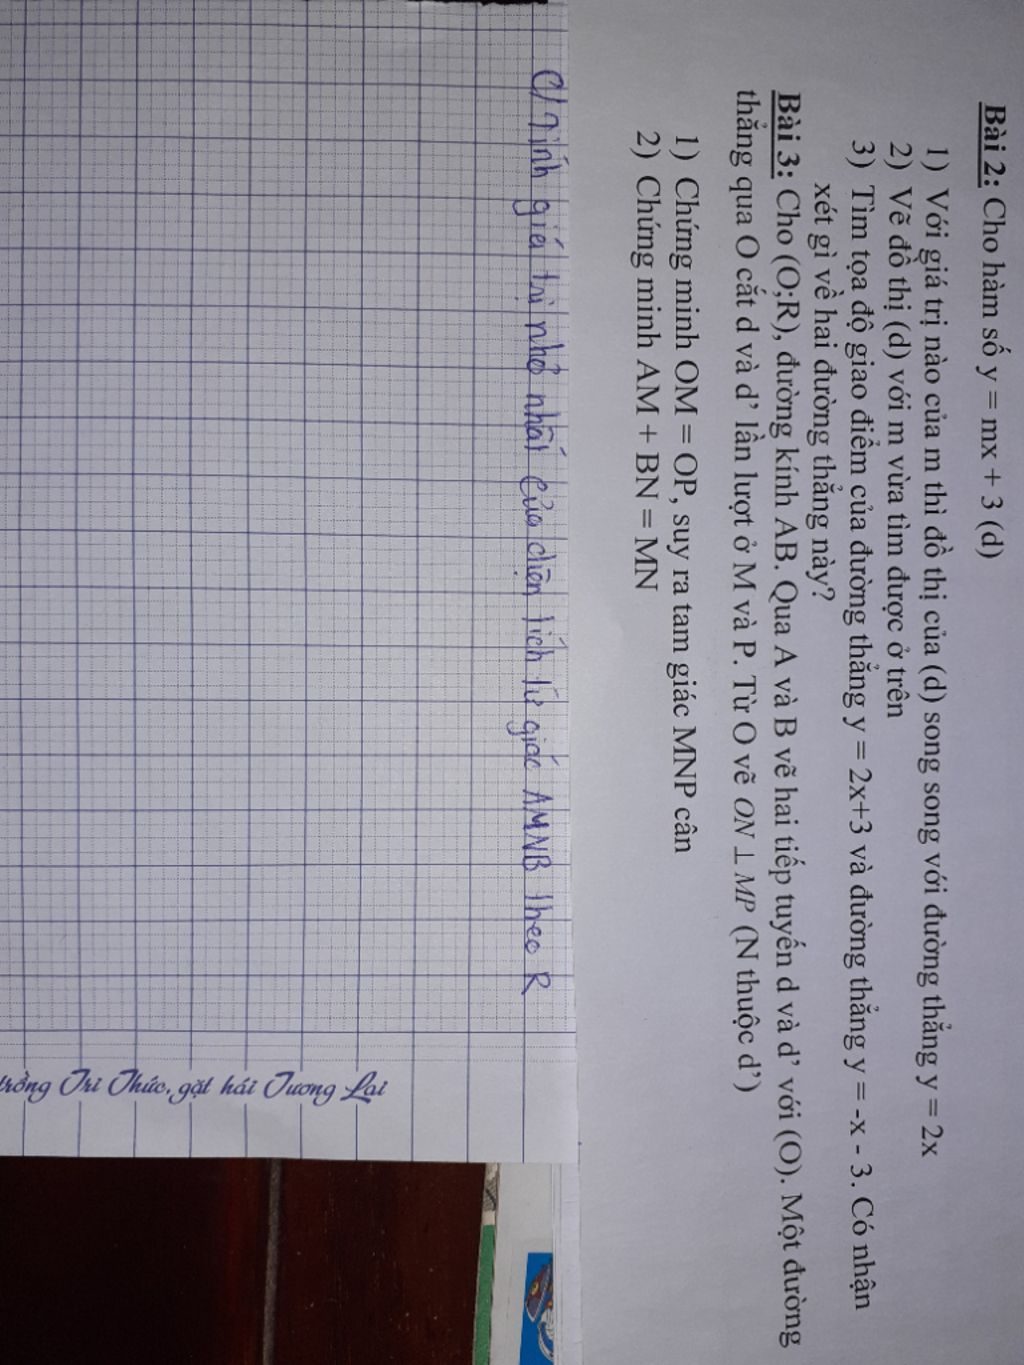 Bài 2: Cho hàm số y = mx + 3 (d)
1) Với giá trị nào của m thì đồ thị của (d) song song với đường thẳng y = 2x
2) Vẽ đồ thị (d) với m vừa tìm được ở trên
3) Tìm tọa độ giao điểm của đường thẳng y = 2x+3 và đường thẳng y = -x - 3. Có nhận
xét gì về hai đường thẳng này?
Bài 3: Cho (O;R), đường kính AB. Qua A và B vẽ hai tiếp tuyến d và d' với (O). Một đường
thẳng qua O cắt d và d' lần lượt ở M và P. Từ O vẽ ON ⊥ MP (N thuộc d')
1) Chứng minh OM = OP, suy ra tam giác MNP cân
2) Chứng minh AM + BN = MN
C/ Tính giá trị nhỏ nhất của diện tích tứ giác AMNB theo R
trồng Tri Thức, gặt hái Tương Lai